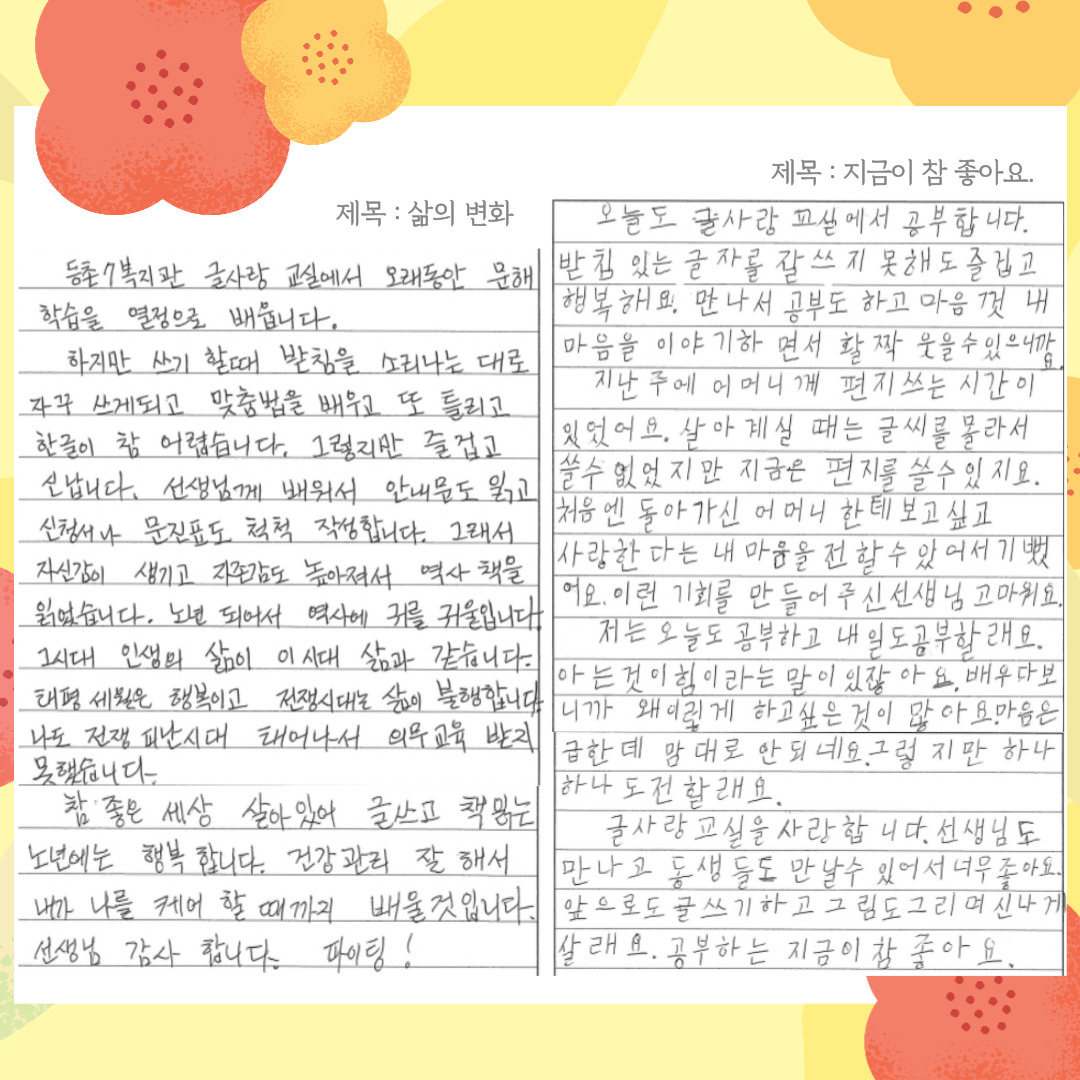 제목 : 삶의 변화
등촌7복지관 글사랑 교실에서 오래동안 문해
학습을 열정으로 배웁니다.
하지만 쓰기 할때 받침을 소리나는 대로
자꾸 쓰게되고 맞춤법을 배우고 또 틀리고
한글이 참 어렵습니다. 그렇지만 즐겁고
신납니다. 선생님께 배워서 안내문도 읽고
신청서나 문진표도 척척 작성합니다. 그래서
자신감이 생기고 자존감도 높아져서 역사 책을
읽었습니다. 노년 되어서 역사에 귀를 귀울입니다.
그시대 인생의 삶이 이 시대 삶과 같습니다.
태평 세월은 행복이고 전쟁시대는 삶이 불행합니다
나도 전쟁 피난시대 태어나서 의무교육 받지
못했습니다.
참 좋은 세상 살아있어 글쓰고 책읽는
노년에는 행복합니다. 건강관리 잘 해서
내가 나를 케어 할 때까지 배울것입니다.
선생님 감사 합니다. 파이팅!
제목 : 지금이 참 좋아요.
오늘도 글사랑 교실에서 공부합니다.
받침 있는 글자를 잘 쓰지 못해도 즐겁고
행복해요. 만나서 공부도 하고 마음껏 내
마음을 이야기하 면서 활짝 웃을수있으니까
요.
지난 주에 어머니께 편지쓰는 시간이
있었어요. 살아계실 때는 글씨를 몰라서
쓸수 없었지만 지금은 편지를 쓸수있지요.
처음엔 돌아가신 어머니 한테 보고싶고
사랑한 다는 내 마음을 전할수 있어서 기뻤
어요. 이런 기회를 만들어 주신선생님 고마워요.
저는 오늘도 공부하고 내일도공부할래요.
아는것이힘이라는 말이있잖아요. 배우다보
니까 왜이렇게 하고싶은것이 많아요.마음은
급한데 맘대로 안되네요.그렇지만 하나
하나 도전할래요.
글사랑교실을 사랑합니다. 선생님도
만나고 동생들도 만날수 있어서너무좋아요.
앞으로도글쓰기하고 그림도그리며신나게
살래요. 공부하는 지금이참 좋아요.